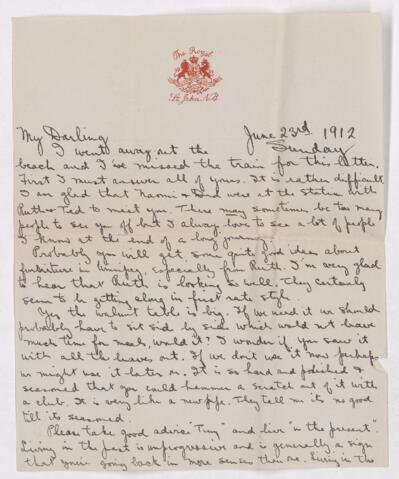 The Royal
St. John, N.B.
My Darling
June 23rd 1912
Sunday
I went away out the
beach and I've missed the train for this letter.
First I must answer all of yours. It is rather difficult.
I am glad that Naomi & Dad were at the station with
Ruth & Ted to meet you. There may sometimes be too many
people to see you off but I always love to see a lot of people
I know at the end of a long journey.
Probably you will get some quite good ideas about
furniture in Winnipeg, especially from Ruth. I'm very glad
to hear that Ruth is looking so well. They certainly
seem to be getting along in first rate style.
Yes the walnut table is big. If we used it we should
probably have to sit side by side which would not leave
much time for meals, would it? I wonder if you saw it
with all the leaves out. If we don't use it now perhaps
we might use it later on. It is so hard and polished &
seasoned that you could hammer a scratch out of it with
a club. It is very like a new pipe. They tell me it's no good
till it's seasoned.
Please take good advice "Tiny" and live "in the present".
Living in the past is unprogressive and is generally a sign
that you're going back in more senses than one. Living in the